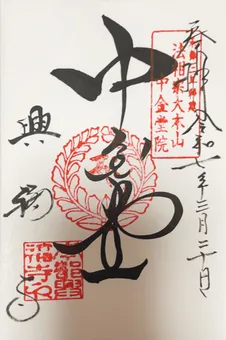 令和七年三月二十日
法相宗大本山
中金堂院
中金堂
興福寺